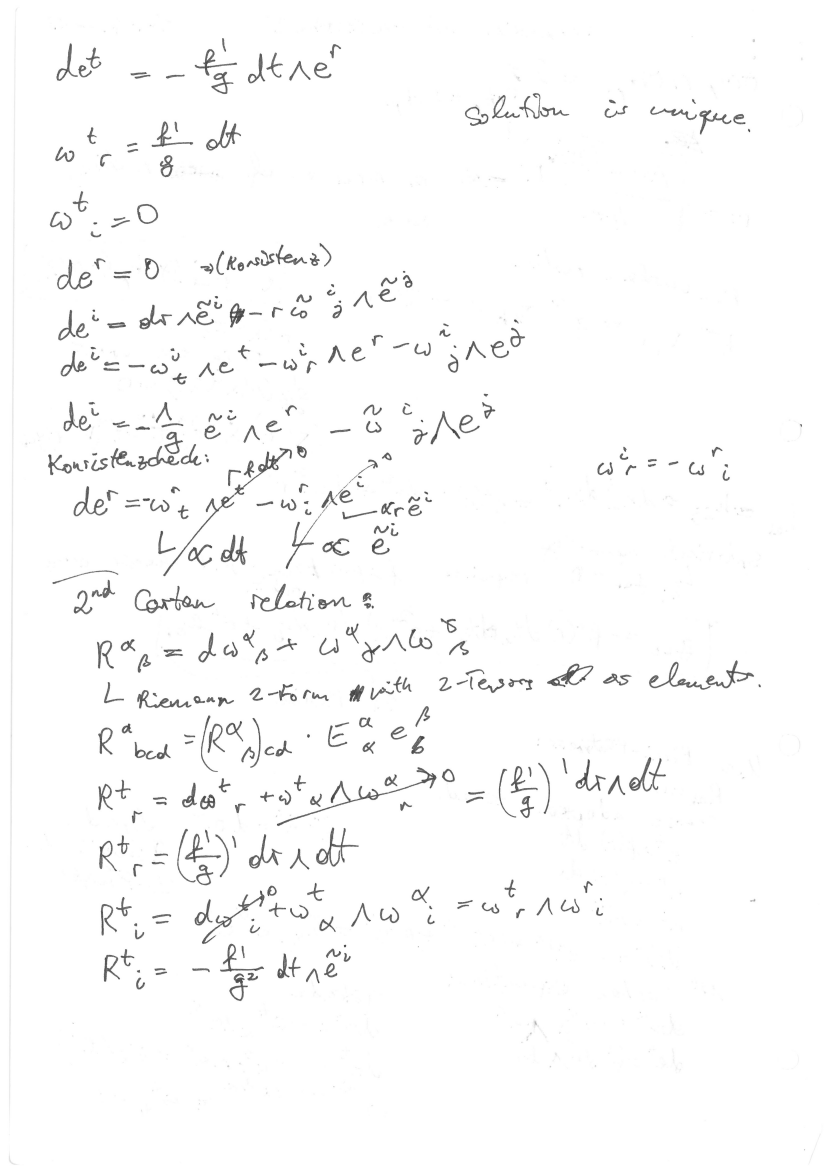 de^t = - f'/g dt ∧ e^r
solution is unique.
ω^t_r = f'/g dt
ω^t_i = 0
de^r = 0 ⇒ (Konsistenz)
de^i = dr ∧ ẽ^i - r ω̃^i_j ∧ ẽ^j
de^i = - ω^i_t ∧ e^t - ω^i_r ∧ e^r - ω^i_j ∧ e^j
de^i = - 1/g ẽ^i ∧ e^r - ω̃^i_j ∧ e^j
Konsistenzcheck: f dt → 0 → 0
ω^i_r = - ω^r_i
de^r = - ω^r_t ∧ e^t - ω^r_i ∧ e^i ∝ r ẽ^i
∝ dt ∝ ẽ^i
2nd Cartan relation:
R^α_β = dω^α_β + ω^α_γ ∧ ω^γ_β
Riemann 2-Form with 2-Tensors as elements.
R^a_bcd = (R^α_β)_cd · E^a_α e^β_b
R^t_r = dω^t_r + ω^t_α ∧ ω^α_r → 0 = (f'/g)' dr ∧ dt
R^t_r = (f'/g)' dr ∧ dt
R^t_i = dω^t_i → 0 + ω^t_α ∧ ω^α_i = ω^t_r ∧ ω^r_i
R^t_i = - f'/g² dt ∧ ẽ^i